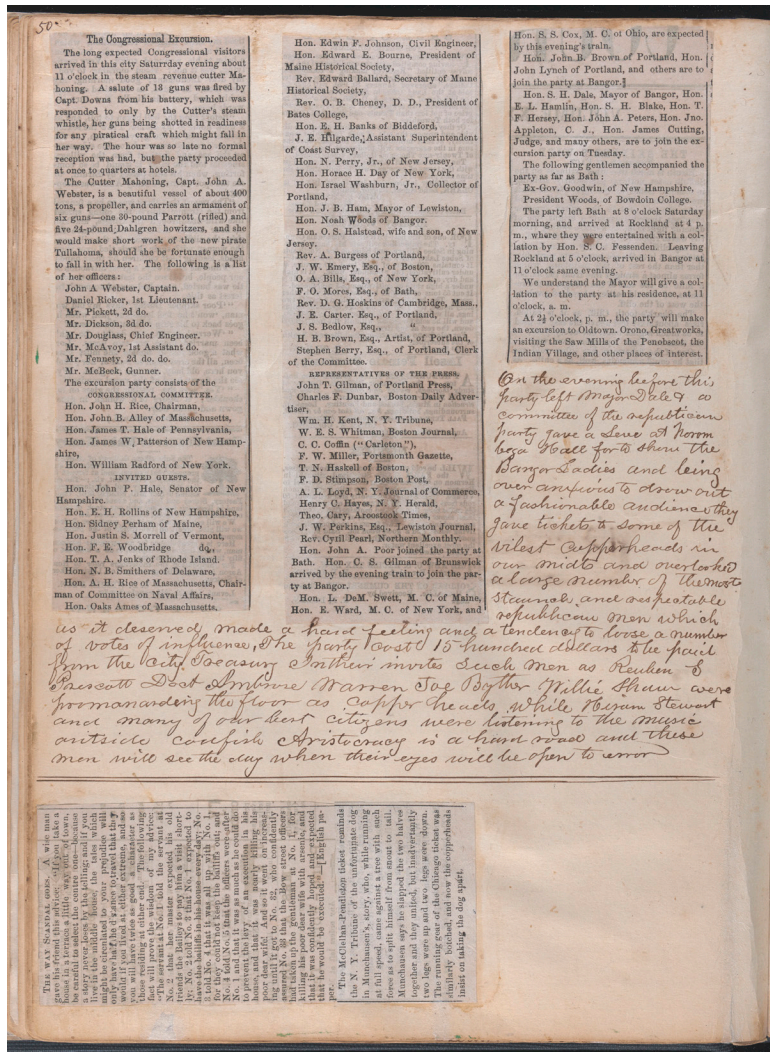 50
The Congressional Excursion.
The long expected Congressional visitors
arrived in this city Saturrday evening about
11 o'clock in the steam revenue cutter Ma-
honing. A salute of 13 guns was fired by
Capt. Downs from his battery, which was
responded to only by the Cutter's steam
whistle, her guns being shotted in readiness
for any piratical craft which might fall in
her way. The hour was so late no formal
reception was had, but the party proceeded
at once to quarters at hotels.
The Cutter Mahoning, Capt. John A.
Webster, is a beautiful vessel of about 400
tons, a propeller, and carries an armament of
six guns—one 30-pound Parrott (rifled) and
five 24-pound Dahlgren howitzers, and she
would make short work of the new pirate
Tullahoma, should she be fortunate enough
to fall in with her. The following is a list
of her officers:
John A Webster, Captain.
Daniel Ricker, 1st Lieutenant.
Mr. Pickett, 2d do.
Mr. Dickson, 3d do.
Mr. Douglass, Chief Engineer.
Mr. McAvoy, 1st Assistant do.
Mr. Fennety, 2d do. do.
Mr. McBeck, Gunner.
The excursion party consists of the
CONGRESSIONAL COMMITTEE.
Hon. John H. Rice, Chairman,
Hon. John B. Alley of Massachusetts,
Hon. James T. Hale of Pennsylvania,
Hon. James W. Patterson of New Hamp-
shire,
Hon. William Radford of New York.
INVITED GUESTS.
Hon. John P. Hale, Senator of New
Hampshire.
Hon. E. H. Rollins of New Hampshire,
Hon. Sidney Perham of Maine,
Hon. Justin S. Morrell of Vermont,
Hon. F. E. Woodbridge do.,
Hon. T. A. Jenks of Rhode Island.
Hon. N. B. Smithers of Delaware,
Hon. A. H. Rice of Massachusetts, Chair-
man of Committee on Naval Affairs,
Hon. Oaks Ames of Massachusetts.
Hon. Edwin F. Johnson, Civil Engineer,
Hon. Edward E. Bourne, President of
Maine Historical Society,
Rev. Edward Ballard, Secretary of Maine
Historical Society,
Rev. O. B. Cheney, D. D., President of
Bates College,
Hon. E. H. Banks of Biddeford,
J. E. Hilgarde, Assistant Superintendent
of Coast Survey,
Hon. N. Perry, Jr., of New Jersey,
Hon. Horace H. Day of New York,
Hon. Israel Washburn, Jr., Collector of
Portland,
Hon. J. B. Ham, Mayor of Lewiston,
Hon. Noah Woods of Bangor.
Hon. O. S. Halstead, wife and son, of New
Jersey.
Rev. A. Burgess of Portland,
J. W. Emery, Esq., of Boston,
O. A. Bills, Esq., of New York,
F. O. Mores, Esq., of Bath,
Rev. D. G. Hoskins of Cambridge, Mass.,
J. E. Carter. Esq., of Portland,
J. S. Bedlow, Esq., "
H. B. Brown, Esq., Artist, of Portland,
Stephen Berry, Esq., of Portland, Clerk
of the Committee.
REPRESENTATIVES OF THE PRESS.
John T. Gilman, of Portland Press,
Charles F. Dunbar, Boston Daily Adver-
tiser,
Wm. H. Kent, N. Y. Tribune,
W. E. S. Whitman, Boston Journal,
C. C. Coffin ("Carleton"),
F. W. Miller, Portsmouth Gazette,
T. N. Haskell of Boston,
F. D. Stimpson, Boston Post,
A. L. Loyd, N. Y. Journal of Commerce,
Henry C. Hayes, N. Y. Herald,
Theo. Cary, Aroostook Times,
J. W. Perkins, Esq., Lewiston Journal,
Rev. Cyril Pearl, Northern Monthly.
Hon. John A. Poor joined the party at
Bath. Hon. C. S. Gilman of Brunswick
arrived by the evening train to join the par-
ty at Bangor.
Hon. L. DeM. Swett, M. C. of Maine,
Hon. E. Ward, M. C. of New York, and
Hon. S. S. Cox, M. C. of Ohio, are expected
by this evening's train.
Hon. John B. Brown of Portland, Hon.
John Lynch of Portland, and others are to
join the party at Bangor.
Hon. S. H. Dale, Mayor of Bangor, Hon.
E. L. Hamlin, Hon. S. H. Blake, Hon. T.
F. Hersey, Hon. John A. Peters, Hon. Jno.
Appleton, C. J., Hon. James Cutting,
Judge, and many others, are to join the ex-
cursion party on Tuesday.
The following gentlemen accompanied the
party as far as Bath:
Ex-Gov. Goodwin, of New Hampshire,
President Woods, of Bowdoin College.
The party left Bath at 8 o'clock Saturday
morning, and arrived at Rockland at 4 p.
m., where they were entertained with a col-
lation by Hon. S. C. Fessenden. Leaving
Rockland at 5 o'clock, arrived in Bangor at
11 o'clock same evening.
We understand the Mayor will give a col-
lation to the party at his residence, at 11
o'clock, a. m.
At 2½ o'clock, p. m., the party will make
an excursion to Oldtown. Orono, Greatworks,
visiting the Saw Mills of the Penobscot, the
Indian Village, and other places of interest.
On the evening before this
party left Major Dale & a
committee of the republican
party gave a Leve at Norom
bega Hall for to show the
Bangor Ladies and being
over anxious to draw out
a fashionable audience they
gave tickets to some of the
vilest copperheads in
our midts and overlooked
a large number of the most
staunch and respectable
republican men which
as it deserved made a hard feeling and a tendency to loose a number
of votes of influence, The party cost 15 hundred dollars to be paid
from the City Treasury In their invites such men as Reuben S
Prescott Doct Ambrose Warren Joe Byther Willie Shaw were
promanarding the floor as copper heads while Hiram Stewart
and many of our best citizens were listening to the music
outside codfish Aristocracy is a hard road and these
men will see the day when their eyes will be open to error
THE WAY SCANDAL GOES. A wise man
gave his friend this advice: "If you take a
house in a terrace a little way out of town,
be careful to select the centre one—because
a story never loses by the telling; and if you
live in the middle house the tales which
might be circulated to your prejudice will
only have half the distance to travel that they
would if you lived at either extreme, and so
you will have twice as good a character as
those residing at either end. The following
fact will prove the wisdom of my advice:
"The servant at No. 1 told the servant at
No. 2 that her master expected his old
friends the Baileys to pay him a visit short-
ly; No. 2 told No. 3 that No. 1 expected to
have the bailiffs in his house every day; No.
3 told No. 4 that it was all up with No. 1,
for they could not keep the bailiffs out; and
No. 4 told No. 5 that the officers were after
No. 1 and that it was as much as he could do
to prevent the levy of an execution in his
house, and that it was nearly killing his
poor dear wife! And so it went on increas-
ing until it got to No. 32, who confidently
assured No. 33 that the Bow street officers
had taken up the gentleman at No. 1, for
killing his poor dear wife with arsenic, and
that it was confidently hoped and expected
that he would be executed."—[English pa-
per.
The McClellan-Pendleton ticket reminds
the N. Y. Tribune of the unfortunate dog
in Munchausen's, story, who, while running
at full speed, came against a tree with such
force as to split himself from snout to tail.
Munchausen says he slapped the two halves
together and they united, but inadvertantly
two legs were up and two legs were down.
The running gear of the Chicago ticket was
similarly botched and now the copperheads
insist on taking the dog apart.